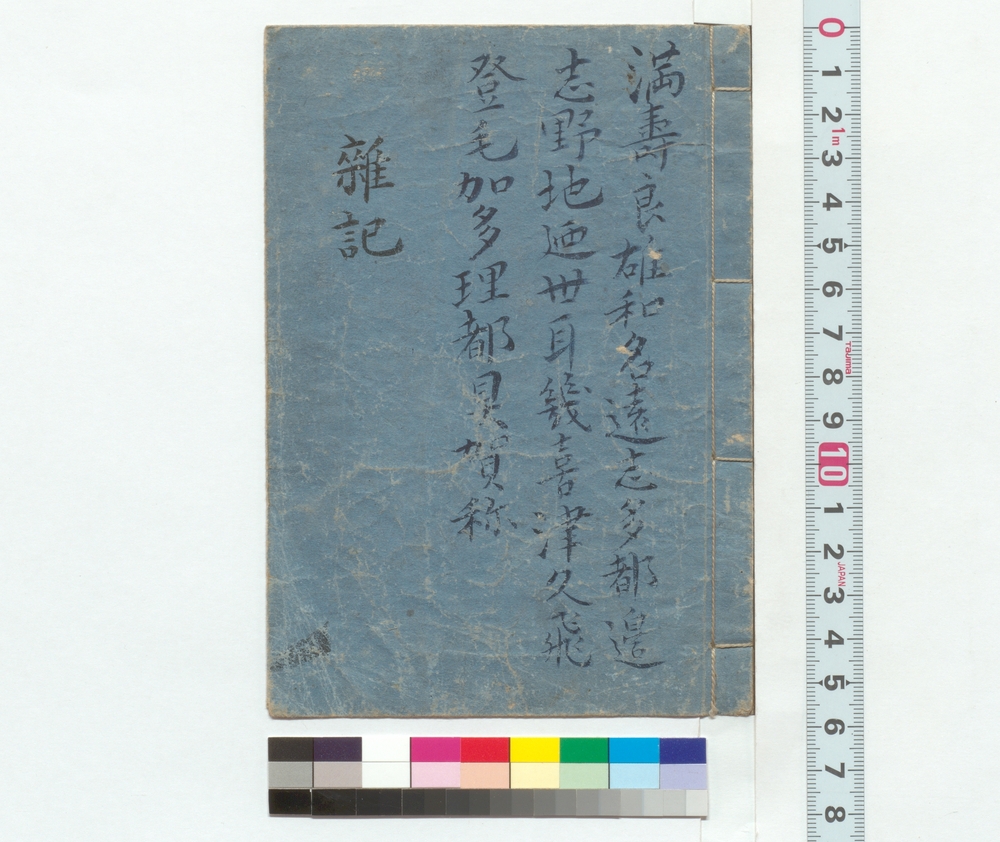 満壽良雄和名遠志多都邉
志野地廼世耳幾喜津久飛
登毛加多理都具賀称
雜記
0 1 2 3 4 5 6 7 8 9 10 1 2 3 4 5 6 7 8
1m
Tajima
JAPAN